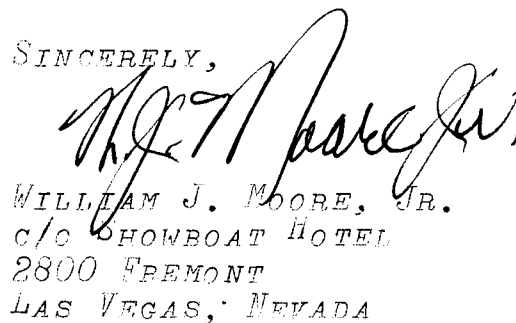 SINCERELY,
W. J. Moore Jr.
WILLIAM J. MOORE, JR.
c/o SHOWBOAT HOTEL
2800 FREMONT
LAS VEGAS, NEVADA